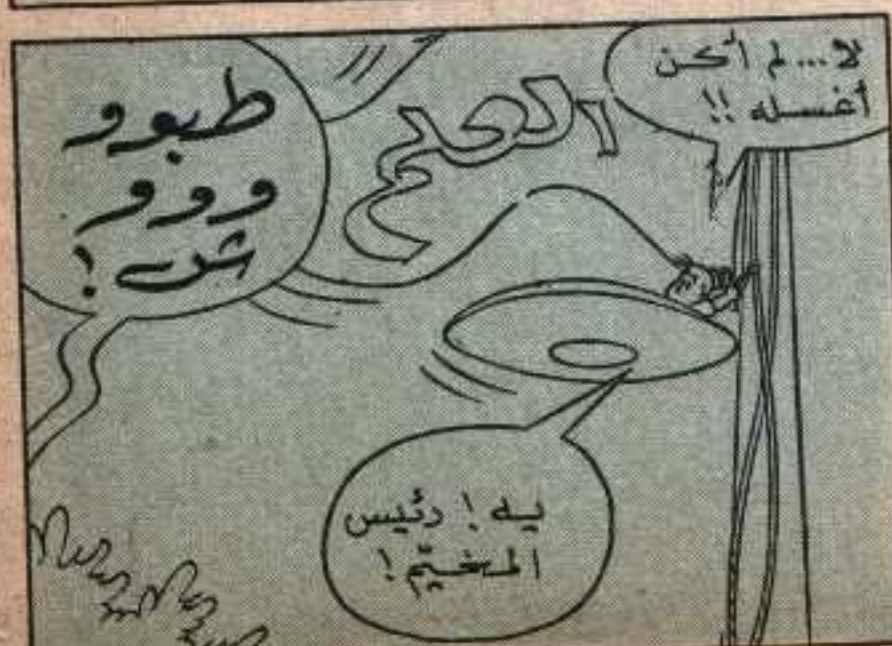 لا... لم أكن
أغسله !!
طبوو
ووو
ش !
يه ! رئيس
المخيّم !